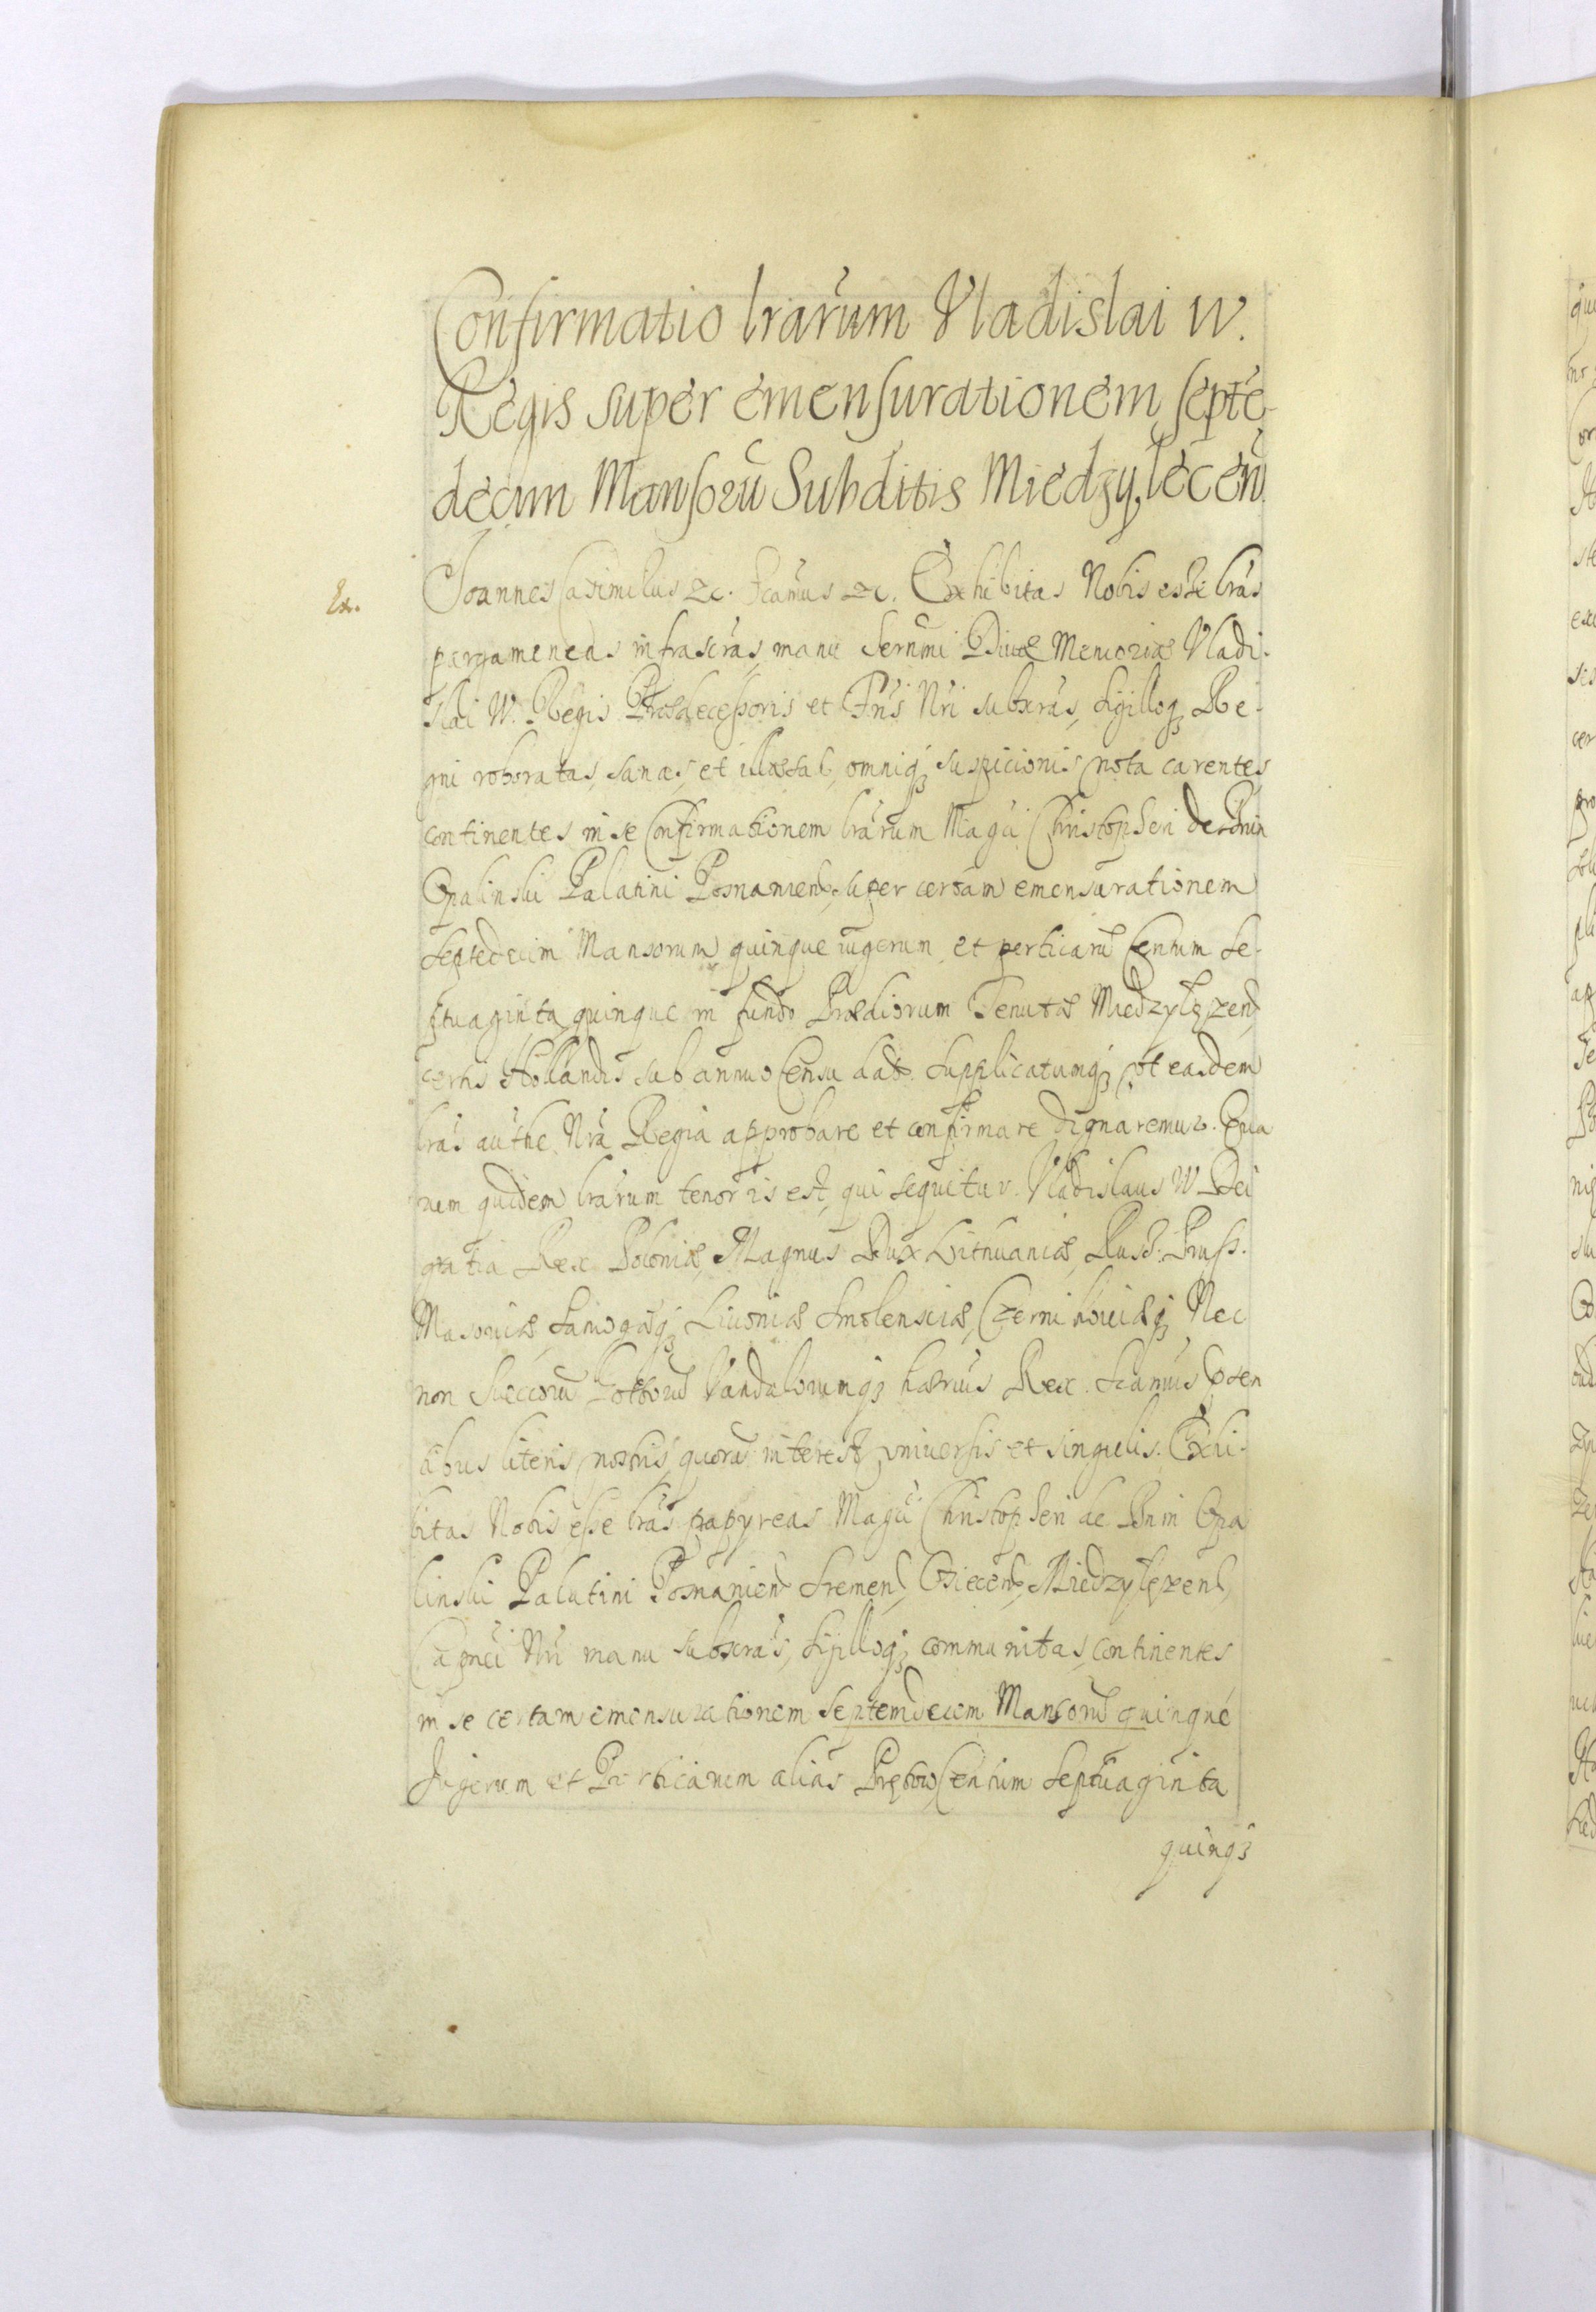 Confirmatio lrarum Vladislai IV.
Regis super emensurationem septe-
decim Mansorũ Subditis Miedzylecen̄.
Ex.
Joannes Casimilus Zc. Scamus Zc. Exhibitas Nobis esse lras
pergameneas infrascras, manu Sernmi Divæ Memoriæ Vladi-
slai IV. Regis Prædecessoris et Fris Nri subscras, sigilloq; Re-
gni roboratas, sanas, et illæsas, omniq; suspicionis nota carentes,
continentes in se Confirmationem lrarum Magci Christopheri de Bnin
Opalinski Palatini Posnanien, super certam emensurationem
Septedecim Mansorum, quinque iugerum, et perticarũ Centum Se-
ptuaginta quinque in fundo Prædiorum Tenutæ Miedzylęzen
certis Hollandis sub annuo Censu dat. Supplicatumq; ut easdem
lras authe Nra Regia approbare et confirmare dignaremur. Qua
rum quidem lrarum tenor is est, qui sequitur. Vladislaus IV Dei
gratia Rex Poloniæ, Magnus Dux Lithuaniæ, Russ: Pruss.
Masoviæ, Samogiæq; Livoniæ Smolensciæ, Czernihoviæq; Nec
non Suecorũ Gottorũ Vandalorumq; hærius Rex. Scamus psen
tibus literis nostris, quorũ interest, vniversis et singulis. Exhi-
bitas Nobis esse lras papyreas Magci Christopheri de Bnin Opa
linski Palatini Posnanien Sremen, Osiecen, Miedzylęzen,
Capnei Nri manu subscras, sigilloq; communitas, continentes
in se certam emensurationem Septemdecem Mansorũ quinque
Jugerum et Perticarum alias Prętow Centum Septuaginta
quinq;